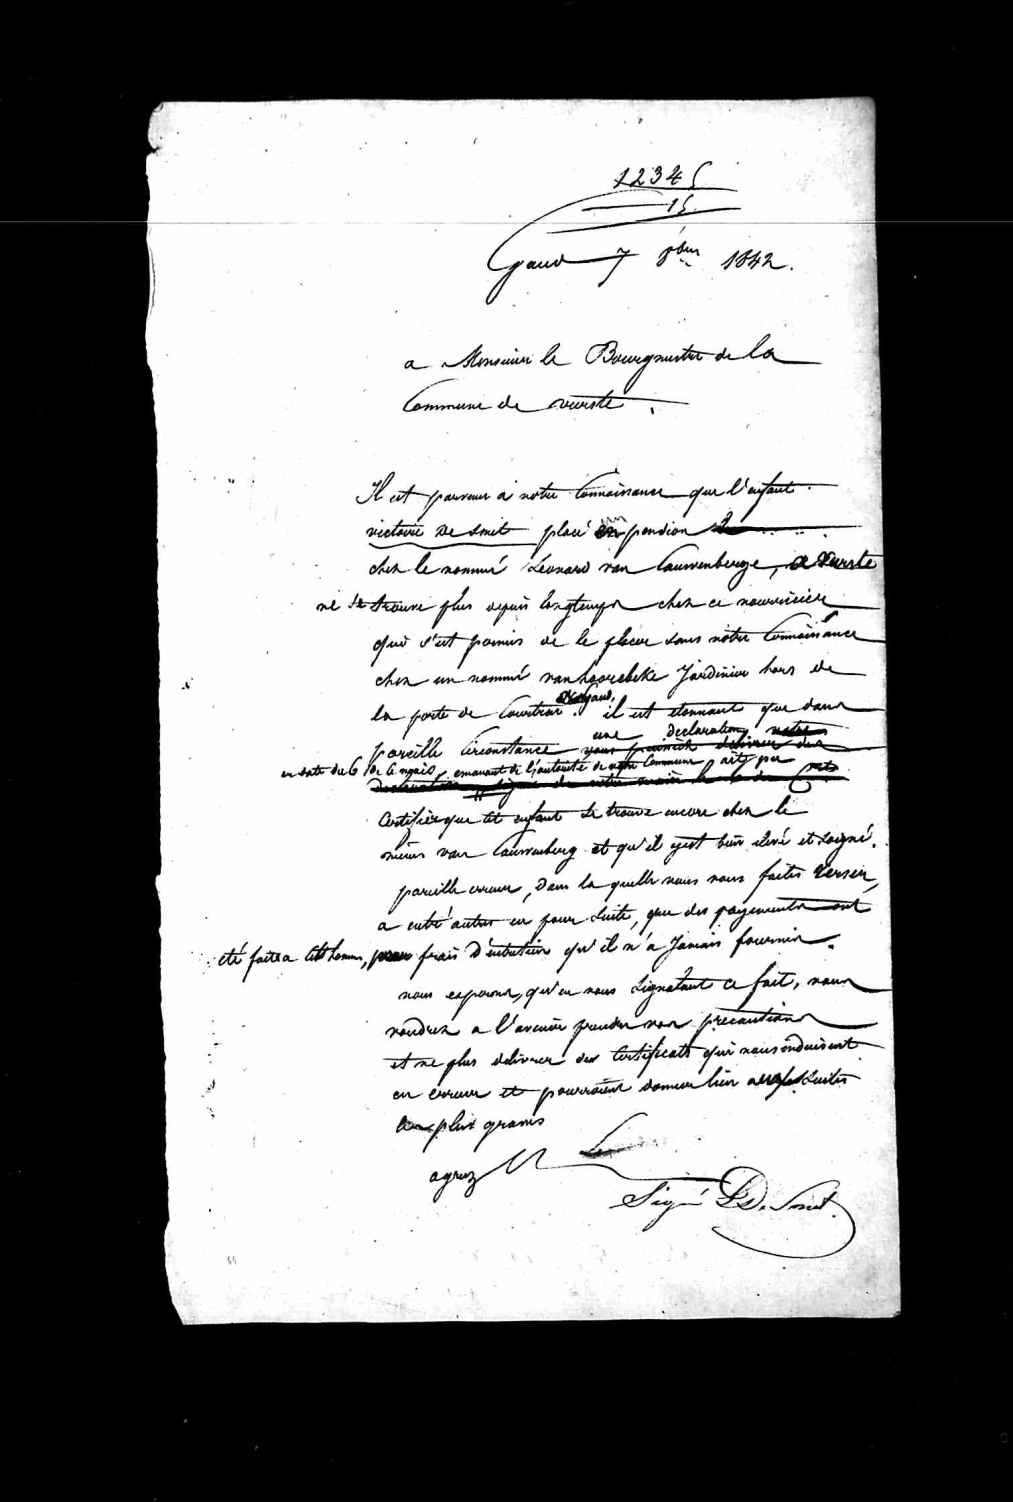 12345
15
Gand 7 8bre 1842.
a Monsieur le Bourgmestre de la
Commune de vurste.
Il est parvenu à notre Connaissance que l'enfant
victoire De Smet placé en pension
chez le nommé Léonard van Cauwenberge, a Vurste
ne se trouve plus depuis longtemps chez ce nourricier
qui s'est permis de le placer sans notre Connaissance
chez un nommé van hoorebeke Jardinier hors de
la porte de Courtrai a Gand. il est etonnant que dans
pareille Circonstance une declaration
en date du 6 de ce mois, emanant de l'autorité de votre Commune ait pu
Certifier que cet enfant se trouve encore chez le
sieur van Cauwenberg et qu'il y est bien elevé et soigné.
pareille erreur, dans la quelle vous nous faites verser,
a entr'autres eu pour suite, que des payements ont
été faits a cet homme, pour frais d'entretien qu'il n'a Jamais fournis.
nous esperons, qu'en vous signalant ce fait, vous
voudrez a l'avenir prendre vos precautions
et ne plus delivrer des Certificats qui nous induisent
en erreur et pourraient donner lieu a des suites
plus graves
agreez
Signé De Smet.